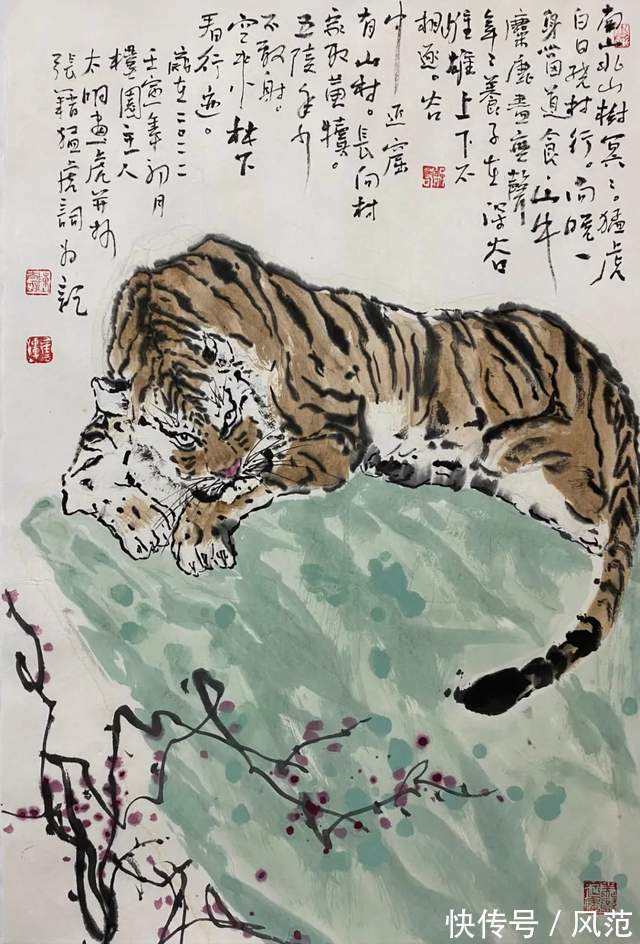 南山北山樹冥〻猛虎
白日绕村行。向晚一
身當道食，山中
麋鹿盡無聲
年〻養子在深谷
雌雄上下不
相逐。谷
中近窟
有山村。長向村
家取黄犢。
五陵年少
不敢射。
空來林下
看行迹。
歲在二〇二二
壬寅年初月
園主人
太明畫虎并抄
張籍猛虎詞为記
快传号／风范